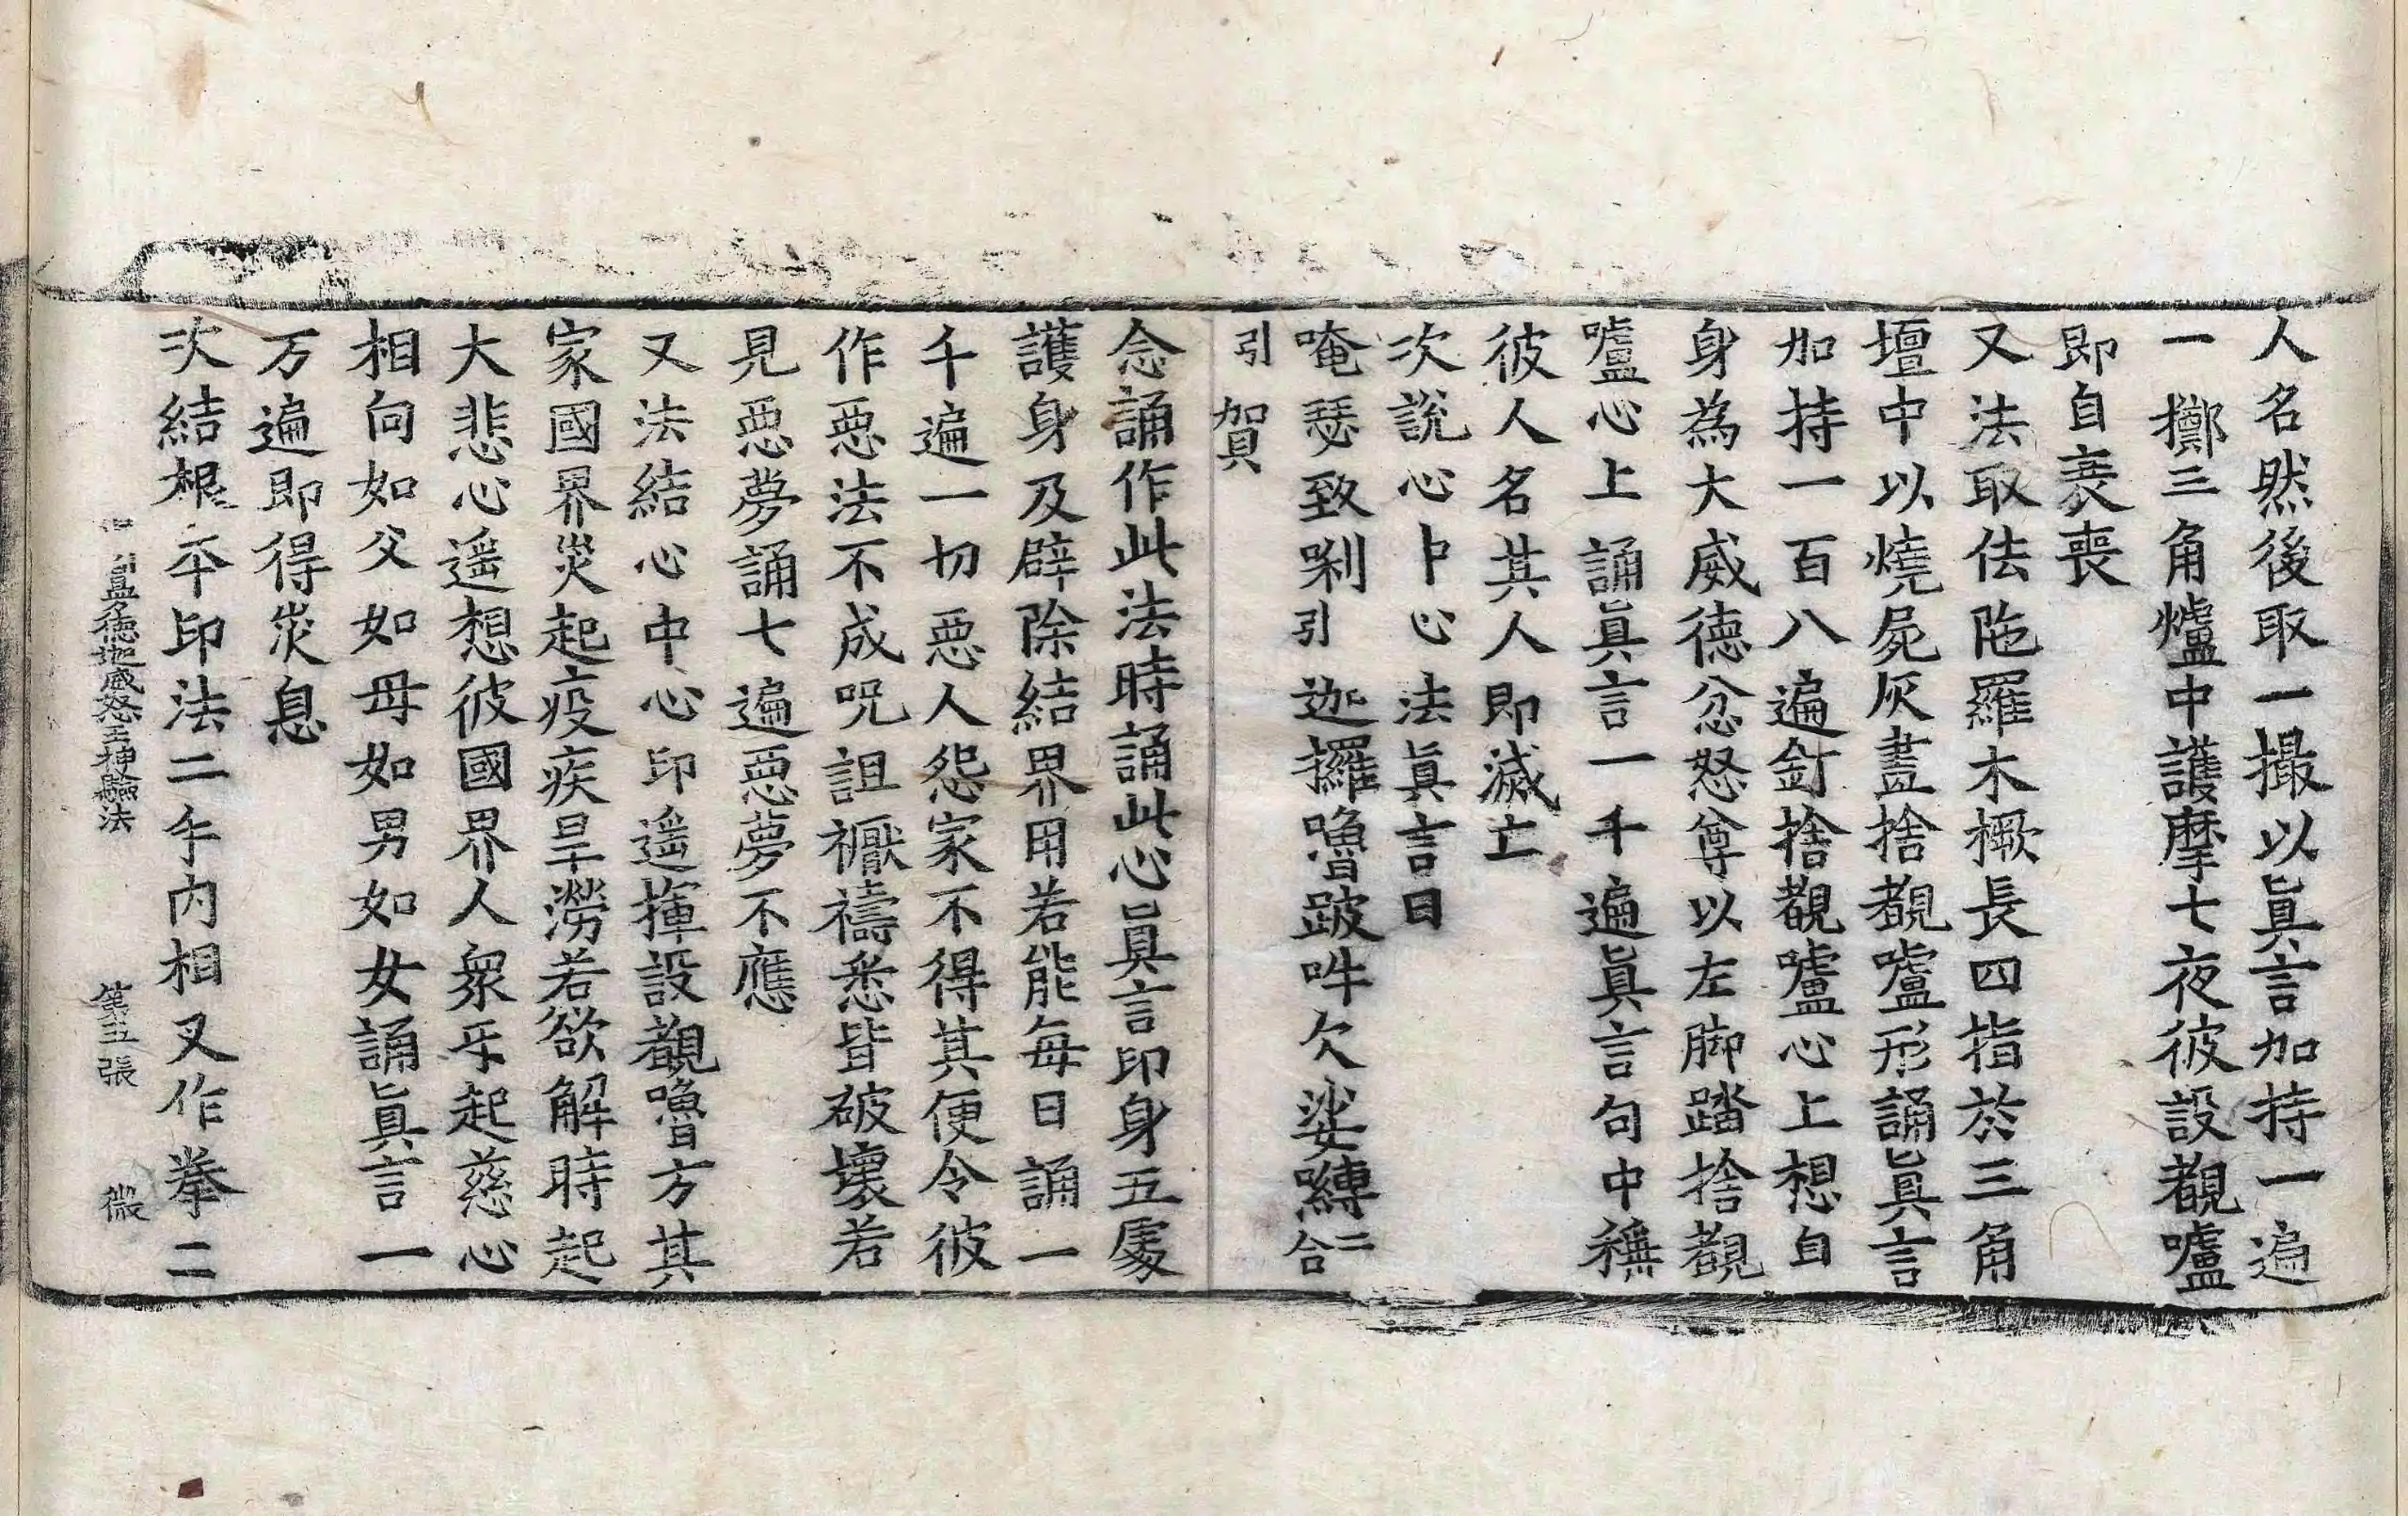 人名然後取一撮以眞言加持一遍
一擲三角爐中護摩七夜彼設覩嚧
即自衰喪
又法取佉陁羅木橛長四指於三角
壇中以燒屍灰畫捨覩嚧形誦眞言
加持一百八遍釘捨覩嚧心上想自
身為大威德忿怒尊以左脚踏捨覩
嚧心上誦眞言一千遍眞言句中稱
彼人名其人即滅亡
次說心中心法眞言曰
唵瑟致唎引迦攞嚕跛吽欠娑嚩二合
引賀
念誦作此法時誦此心眞言印身五處
護身及辟除結界用若能每日誦一
千遍一切惡人怨家不得其便令彼
作惡法不成呪詛禳禱悉皆破壞若
見惡夢誦七遍惡夢不應
又法結心中心印遥揮設覩嚕方其
家國界災起疫疾旱澇若欲解時起
大悲心遥想彼國界人衆㸦起慈心
相向如父如母如男如女誦眞言一
万遍即得災息
次結根本印法二手内相叉作拳二
曼德迦威怒王神驗法 第五張 微